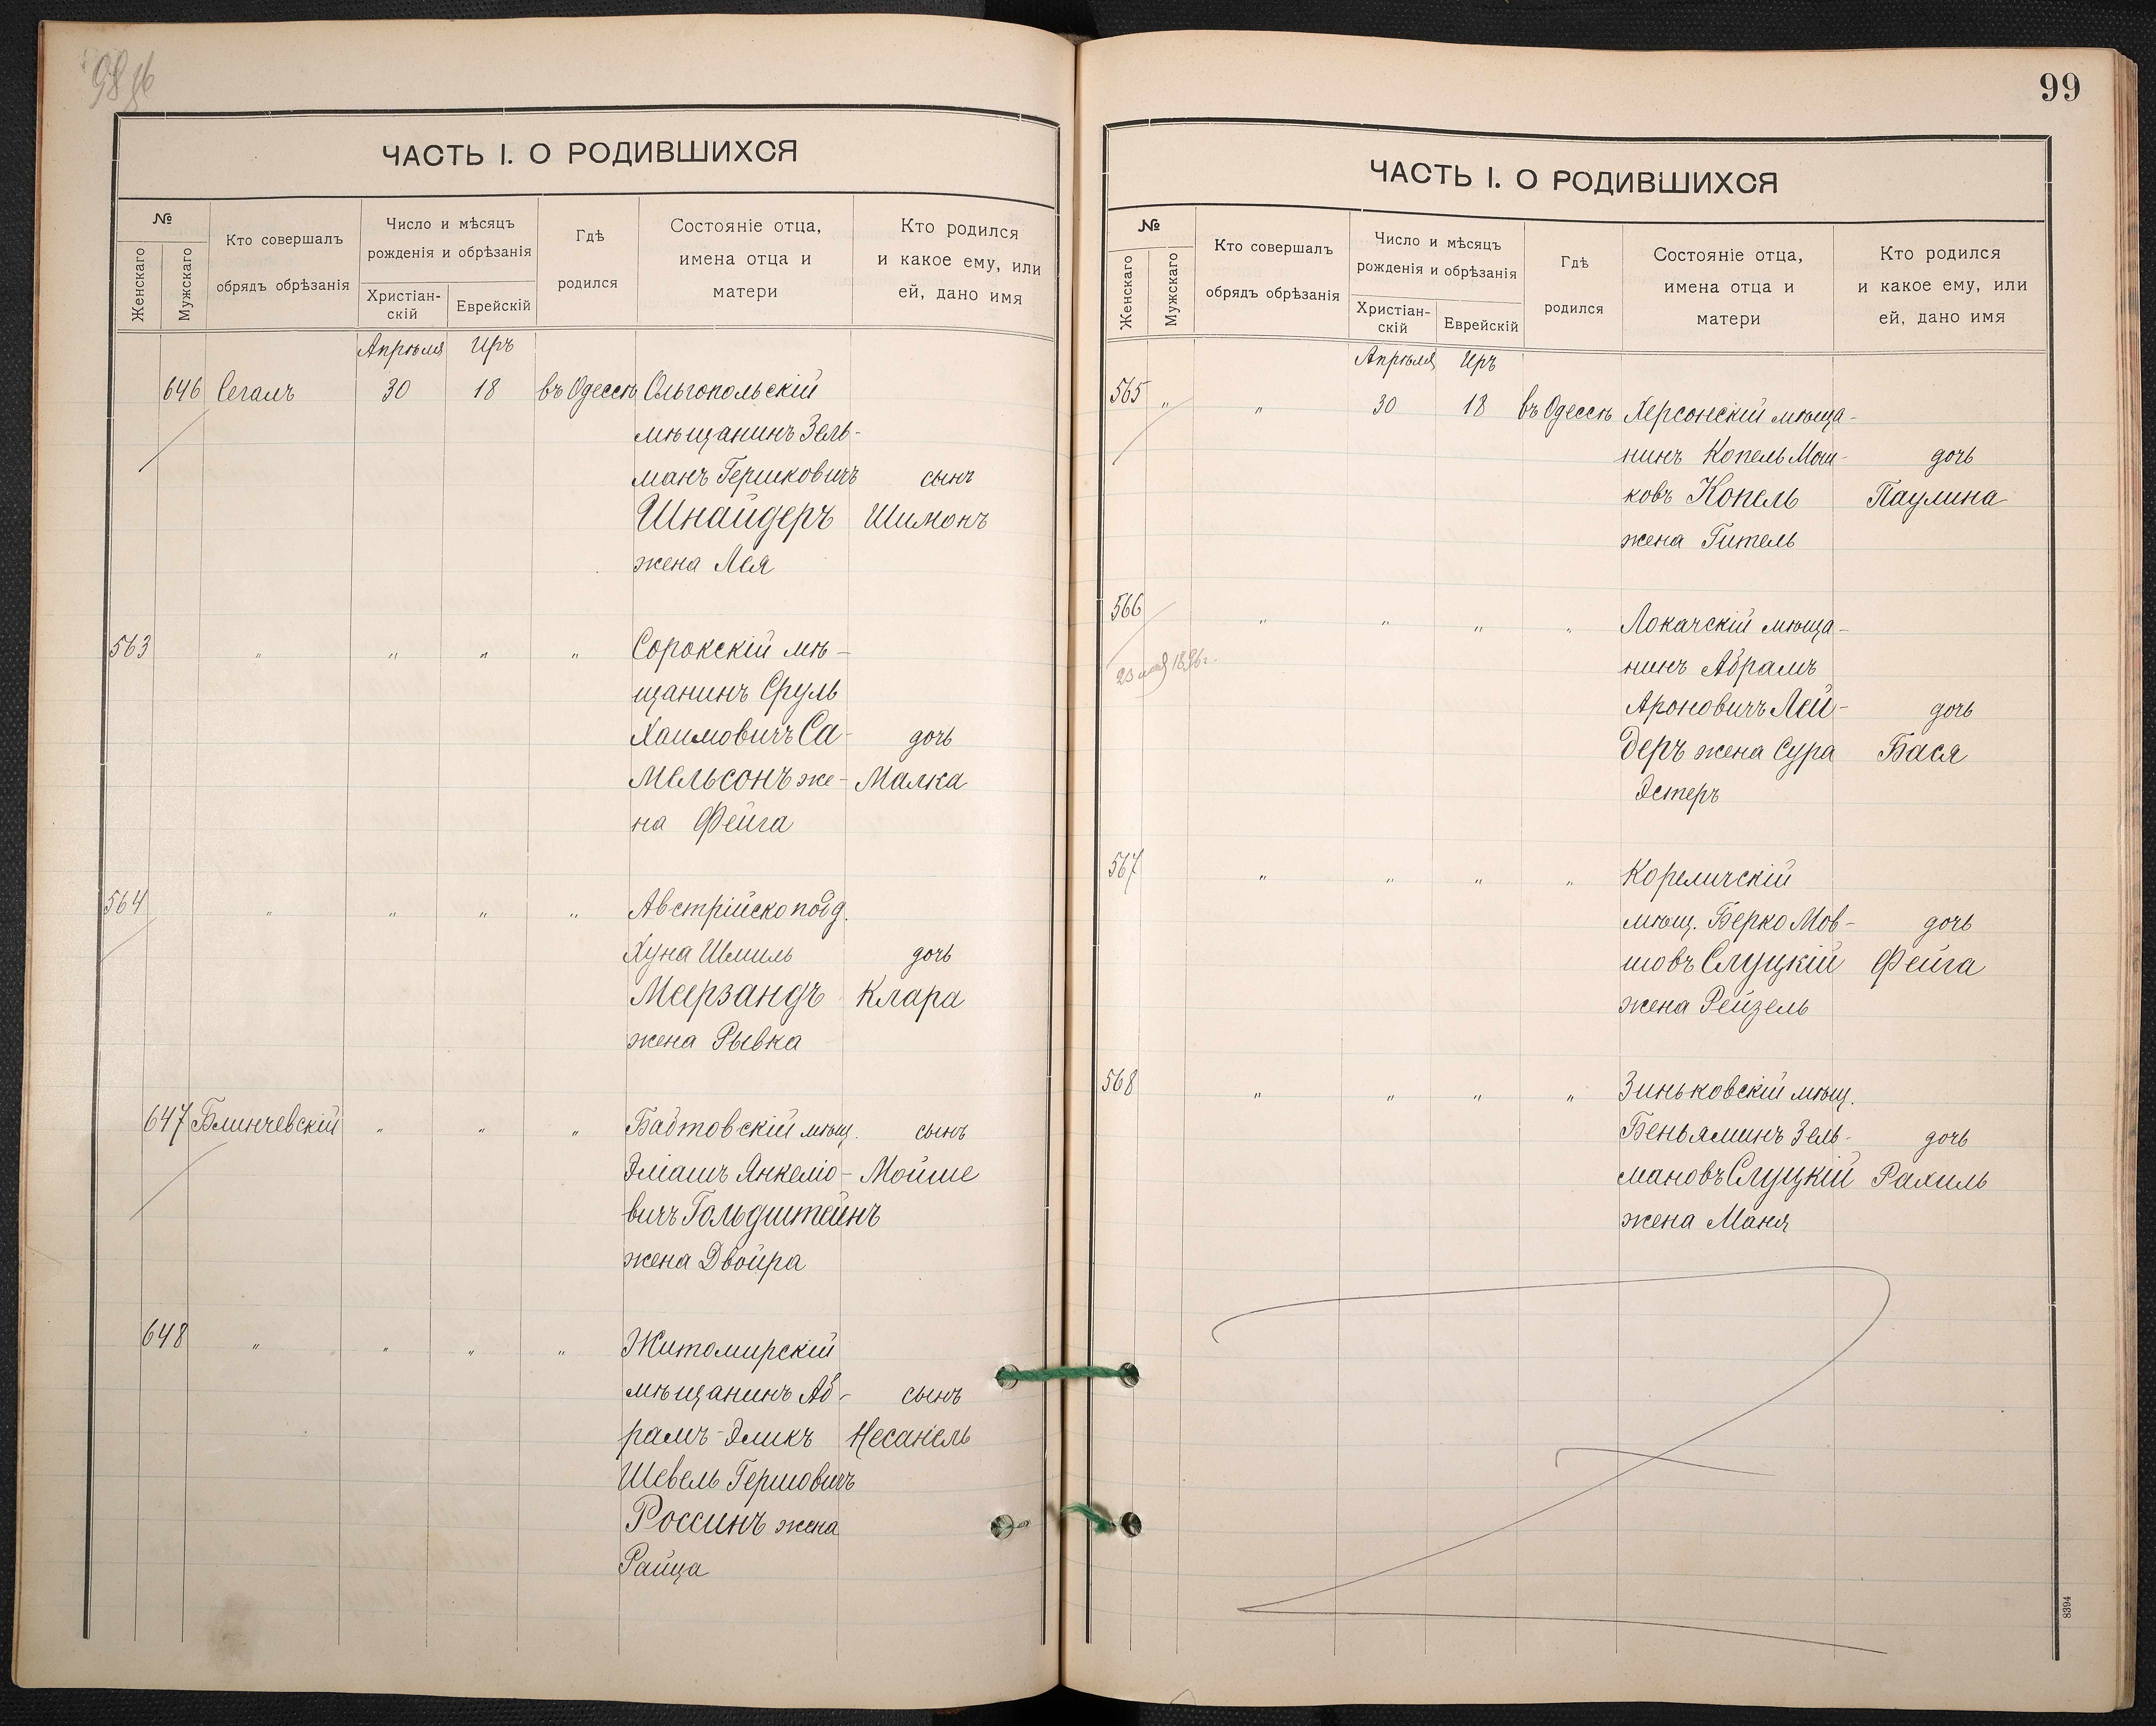 ЧАСТЬ I. О РОДИВШИХСЯ
№
Женскаго
Мужскаго
Кто совершалъ
обрядъ обрѣзанія
Число и мѣсяцъ
рожденія и обрѣзанія
Христіан-
скій
Еврейскій
Гдѣ
родился
Состояніе отца,
имена отца и
матери
Кто родился
и какое ему, или
ей, дано имя
Апрѣля Иръ
646 Сегалъ 30 18 въ Одессѣ Ольгопольскій
мѣщанинъ Зель-
манъ Гершковичъ сынъ
Шнайдеръ Шимонъ
жена Лея
563 " " " " Сорокскій мѣ-
щанинъ Сруль
Хаимовичъ Са- дочь
мельсонъ же- Малка
на Фейга
564 " " " " Австрійско подд.
Хуна Шмиль дочь
Меерзандъ Клара
жена Рывка
647 Блинчевскій " " " мѣщ. сынъ
Эліашъ Янкеліо- Мойше
вичъ Гольдштейнъ
жена Двойра
648 " " " " Житомирскій
мѣщанинъ Аб- сынъ
рамъ-Эликъ Несанель
Шевель Гершовичъ
Россинъ жена
Райца
99
ЧАСТЬ I. О РОДИВШИХСЯ
№
Женскаго
Мужскаго
Кто совершалъ
обрядъ обрѣзанія
Число и мѣсяцъ
рожденія и обрѣзанія
Христіан-
скій
Еврейскій
Гдѣ
родился
Состояніе отца,
имена отца и
матери
Кто родился
и какое ему, или
ей, дано имя
Апрѣля Иръ
565 " " 30 18 въ Одессѣ Херсонскій мѣща-
нинъ Копель Мош- дочь
ковъ Копель Паулина
жена Гитель
566 " " " " Локачскій мѣща-
23 мая 1896 г. нинъ Абрамъ
Ароновичъ Лей- дочь
деръ жена Сура Бася
Эстеръ
567 " " " " Кореличскій
мѣщ. Берко Мов- дочь
шовъ Слуцкій Фейга
жена Рейзель
568 " " " " Зиньковскій мѣщ.
Беньяминъ Зель- дочь
мановъ Слуцкій Рахиль
жена Маня
8394